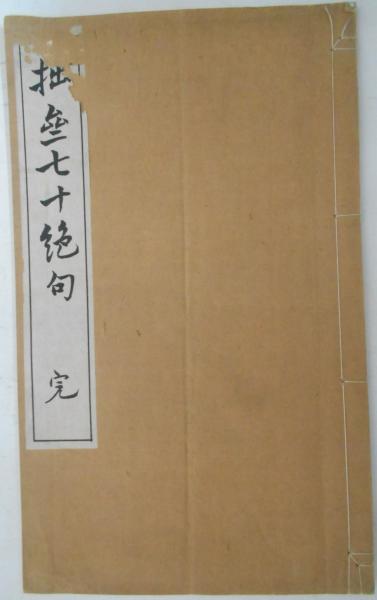 拙亝七十絶句 完